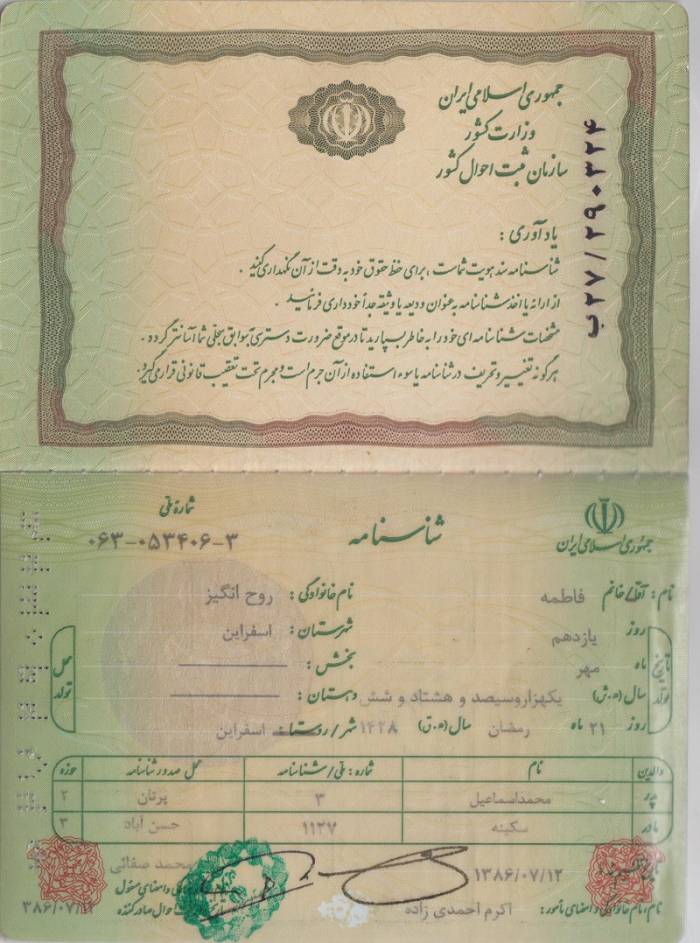 جمهوری اسلامی ایران
وزارت کشور
سازمان ثبت احوال کشور
ب۲۷/۲۹۰۳۲۴
یادآوری :
شناسنامه سند هویت شماست ، برای حفظ حقوق خود به دقت از آن نگهداری کنید .
از ارائه یا اخذ شناسنامه به عنوان ودیعه یا وثیقه جداً خودداری فرمائید .
مشخصات شناسنامه ای خود را به خاطر بسپارید تا در موقع ضرورت دسترسی به سوابق سجلی شما آسانتر گردد .
هرگونه تغییر و تحریف در شناسنامه یا سوء استفاده از آن جرم است و مجرم تحت تعقیب قانونی قرار می گیرد .
جمهوری اسلامی ایران
شناسنامه
شماره ملی
۰۶۳-۰۵۳۴۰۶-۳
نام : آقا/خانم فاطمه نام خانوادگی : روح انگیز
تاریخ تولد
روز یازدهم شهرستان : اسفراین
ماه مهر بخش :
سال (ه.ش) یکهزاروسیصد و هشتاد و شش دهستان :
روز ۲۱ ماه رمضان سال (ه.ق) ۱۴۲۸ شهر/روستا : اسفراین
محل تولد
والدین نام شماره : ملی/شناسنامه محل صدور شناسنامه حوزه
پدر محمداسماعیل ۳ پرتان ۲
مادر سکینه ۱۱۲۷ حسن آباد ۳
۱۳۸۶/۰۷/۱۲ محمد صفائی
نام، نام خانوادگی و امضای مأمور : اکرم احمدی زاده
۱۳۸۶/۰۷/۱۲